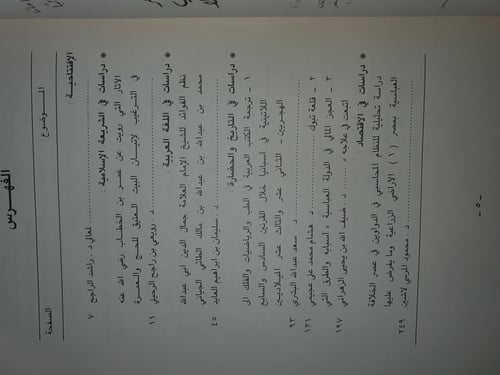 الفهـرس
المـــوضـــوع
الصفحة
الإفتتاحية :
لمعالي د . راشد الراجح ٧
* دراسات في الشريعة الإسلامية :
الآثار التي رويت عن عمر بن الخطاب رضي الله عنه
في الترغيب لإتيان البيت العتيق للحج والعمرة
د . رويعي بن راجح الرحيلي ١١
* دراسات في اللغة العربية :
نظم الفوائد للشيخ الإمام العلامة جمال الدين ابي عبدالله
محمد بن عبدالله بن عبدالله بن مالك الطائي الجياني
د . سليمان بن ابراهيم العايد ٤٥
* دراسات في التاريخ والحضارة :
١ - ترجمة الكتب العربية في الطب والرياضيات والفلك الى
اللاتينية في اسبانيا خلال القرنين السادس والسابع
الهجريين - الثاني عشر والثالث عشر الميلاديين
د . سعد عبدالله البشري ٩٣
٢ - قلعة تبوك د . هشام محمد علي عجيمي ١٣١
٣ - العجز المالي في الدولة العباسية ، اسبابه والطرق التي
اتبعت في علاجه ، د . ضيف الله بن يحيى الزهراني ١٩٧
* دراسات في الاقتصاد :
دراسة تحليلية للنظام المحاسبي في الدواوين في عصر الخلافة
العباسية بمصر (١) الأراضي الزراعية وما يفرض عليها
د . محمود المرسي لاشين ٢٤٩
- ٥ -